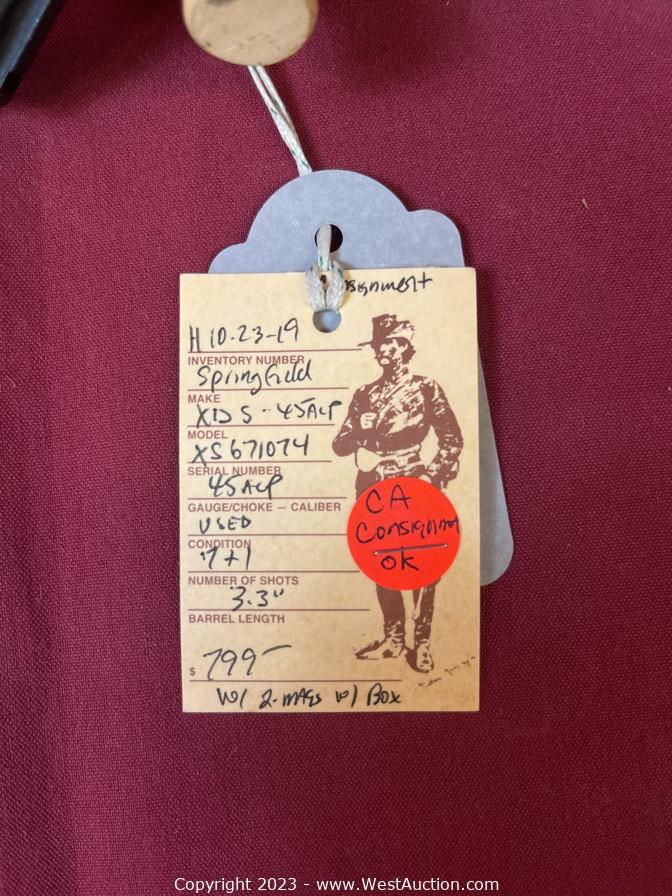 H 10-23-19
INVENTORY NUMBER
Springfield
MAKE
XDS - 45ACP
MODEL
XS671074
SERIAL NUMBER
45 ACP
GAUGE/CHOKE — CALIBER
USED
CONDITION
7+1
NUMBER OF SHOTS
3.3"
BARREL LENGTH
$ 799-
W/ 2-MAGS W/ BOX
CA
Consignment
OK
Copyright 2023 - www.WestAuction.com